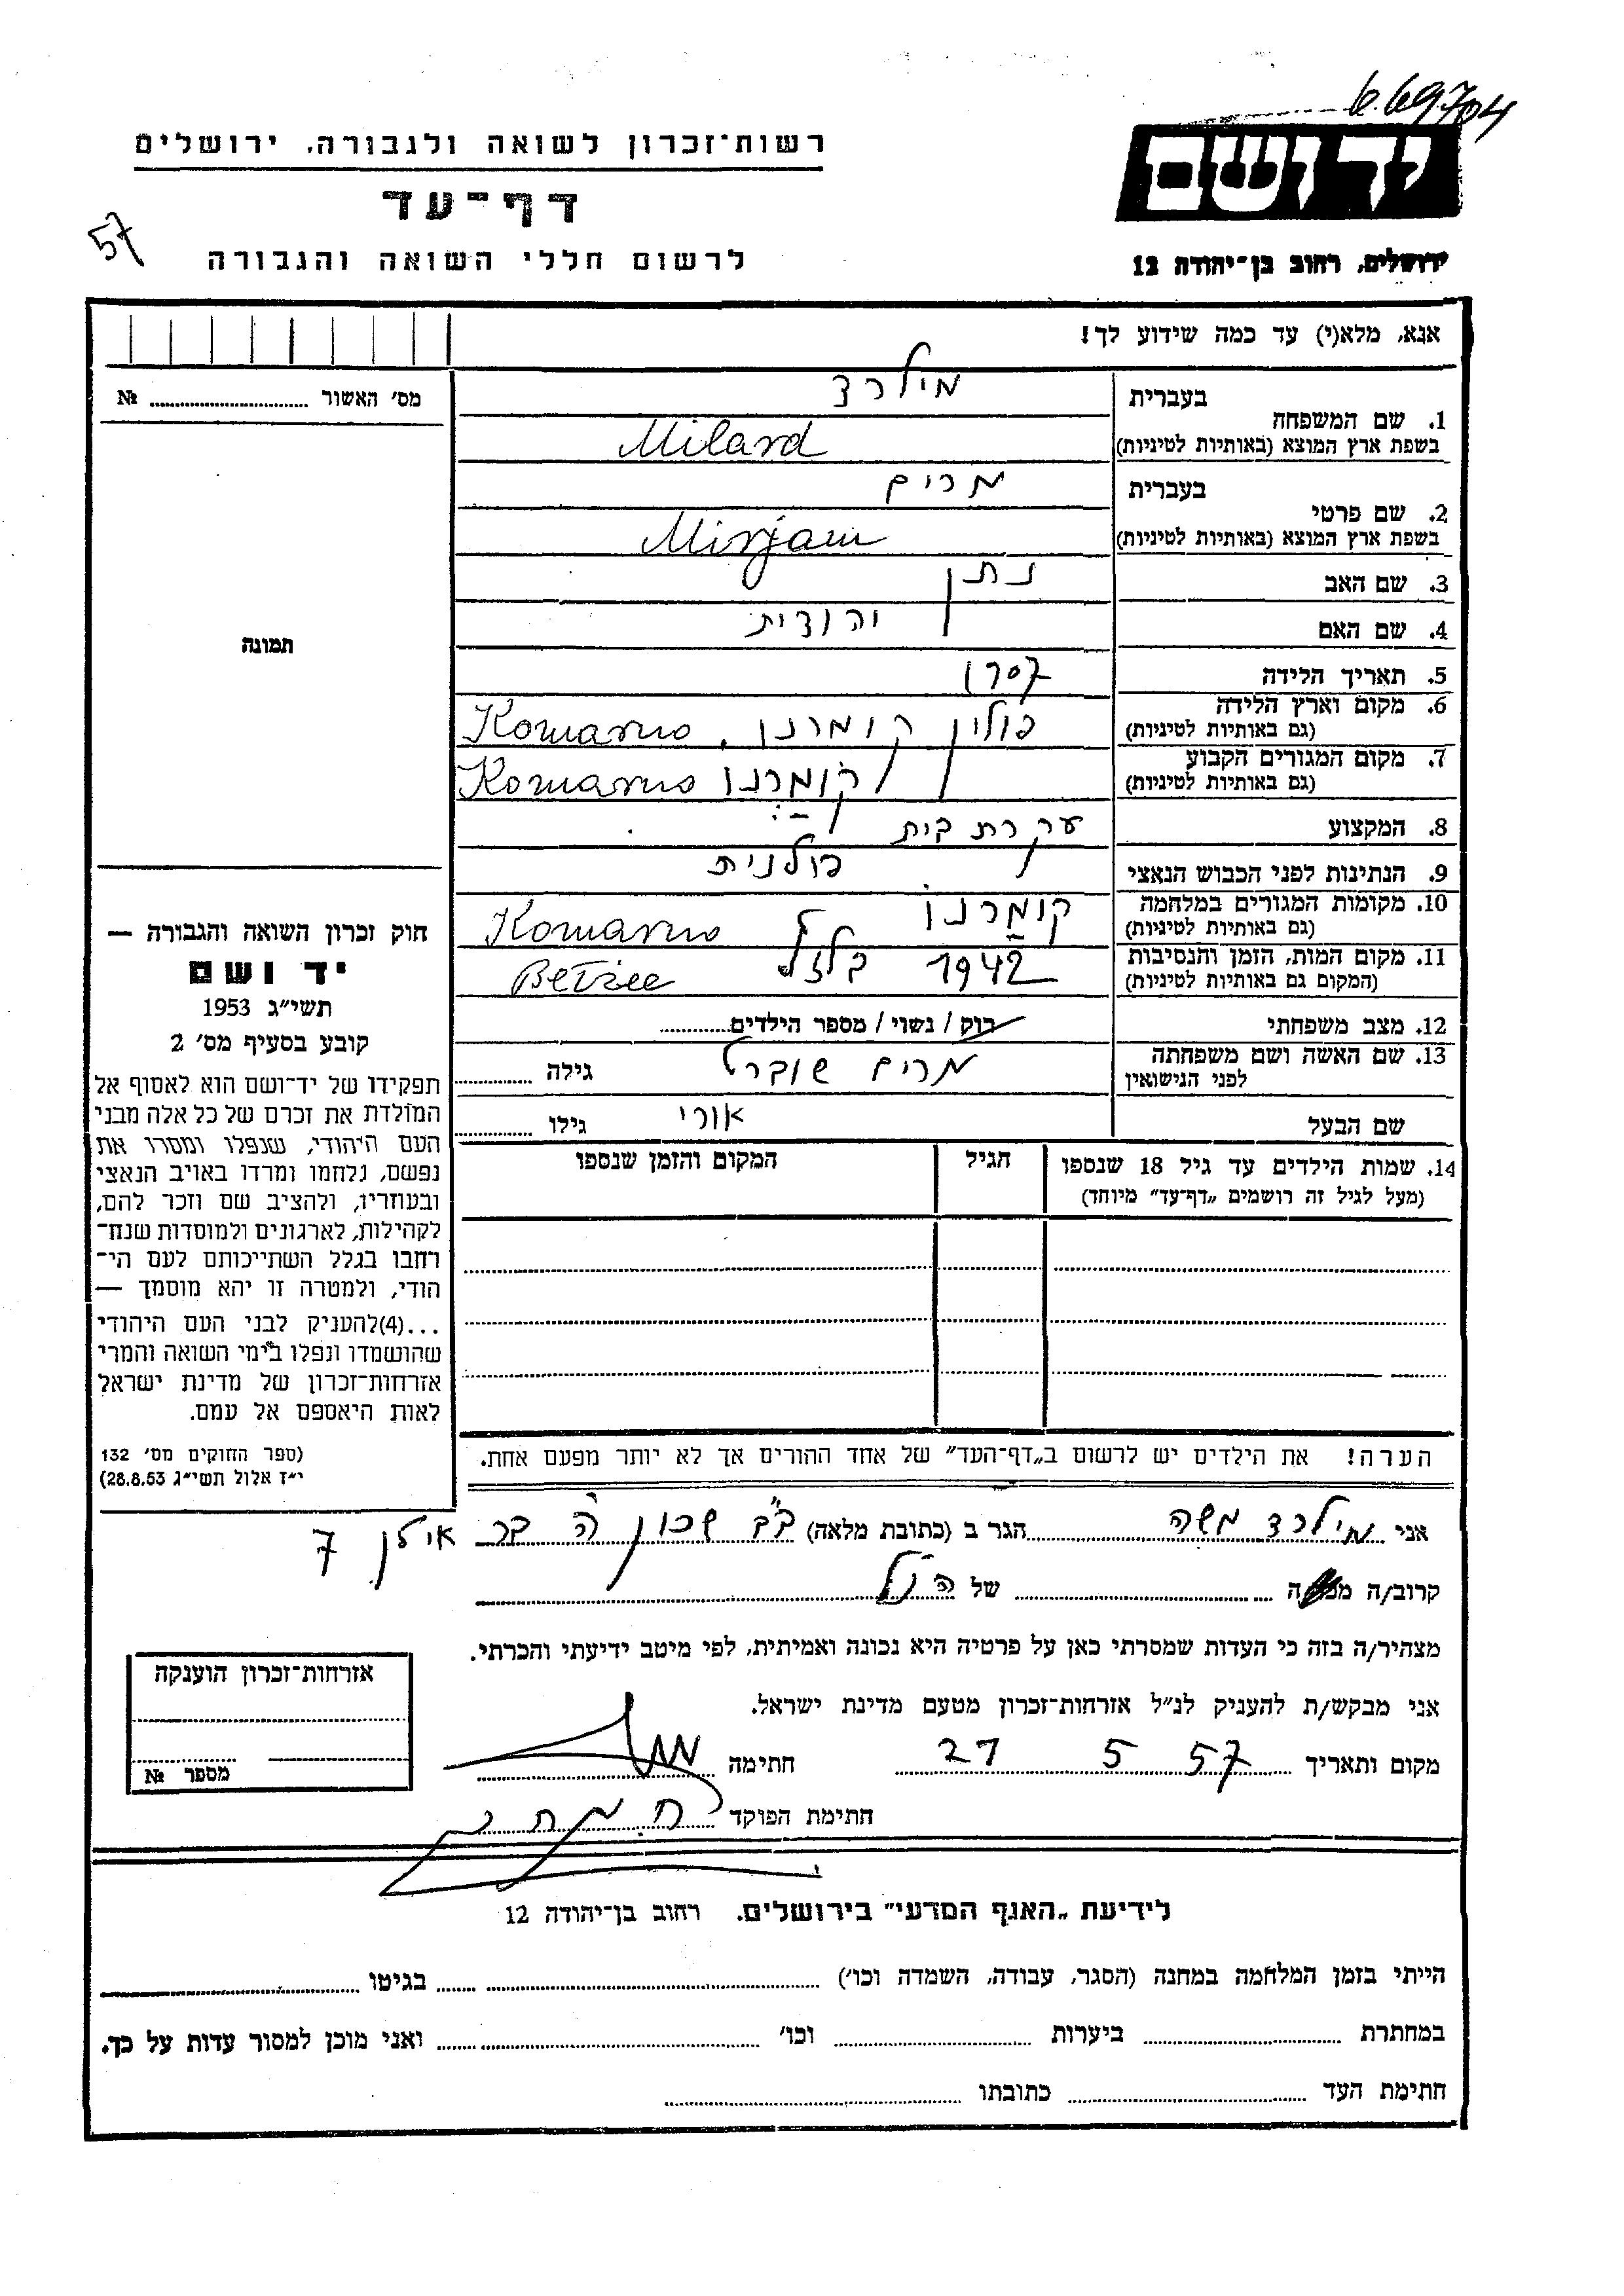 669704
רשות־זכרון לשואה ולגבורה, ירושלים
יד ושם
דף־עד
57
לרשום חללי השואה והגבורה
ירושלים, רחוב בן־יהודה 12
אנא, מלא(י) עד כמה שידוע לך!
מס' האשור № ........
תמונה
1. שם המשפחה בעברית מילרד
בשפת ארץ המוצא (באותיות לטיניות) Milard
2. שם פרטי בעברית מרים
בשפת ארץ המוצא (באותיות לטיניות) Mirjam
3. שם האב נתן
4. שם האם יהודית
5. תאריך הלידה
6. מקום וארץ הלידה (גם באותיות לטיניות) פולין קומרנו, Komarno
7. מקום המגורים הקבוע (גם באותיות לטיניות) קומרנו Komarno
8. המקצוע עקרת בית
9. הנתינות לפני הכבוש הנאצי פולנית
10. מקומות המגורים במלחמה (גם באותיות לטיניות) קומרנו Komarno
11. מקום המות, הזמן והנסיבות (המקום גם באותיות לטיניות) 1942 בלזל Betzec
12. מצב משפחתי רוק / נשוי / מספר הילדים........
13. שם האשה ושם משפחתה לפני הנישואין מרים שוברט גילה ........
שם הבעל אורי גילו ........
14. שמות הילדים עד גיל 18 שנספו
(מעל לגיל זה רושמים „דף־עד" מיוחד)
הגיל
המקום והזמן שנספו
הערה! את הילדים יש לרשום ב„דף־העד" של אחד ההורים אך לא יותר מפעם אחת.
חוק זכרון השואה והגבורה —
יד ושם
תשי"ג 1953
קובע בסעיף מס' 2
תפקידו של יד־ושם הוא לאסוף אל
המולדת את זכרם של כל אלה מבני
העם היהודי, שנפלו ומסרו את
נפשם, נלחמו ומרדו באויב הנאצי
ובעוזריו, ולהציב שם וזכר להם,
לקהילות, לארגונים ולמוסדות שנח־
רחבו בגלל השתייכותם לעם הי־
הודי, ולמטרה זו יהא מוסמך —
...(4)להעניק לבני העם היהודי
שהושמדו ונפלו בימי השואה והמרי
אזרחות־זכרון של מדינת ישראל
לאות היאספם אל עמם.
(ספר החוקים מס' 132
י"ז אלול תשי"ג 28.8.53)
אני מילרד משה הגר ב (כתובת מלאה) ב"ב שכון ה' בר אילן 7
קרוב/ה ........ של הנ"ל
מצהיר/ה בזה כי העדות שמסרתי כאן על פרטיה היא נכונה ואמיתית, לפי מיטב ידיעתי והכרתי.
אני מבקש/ת להעניק לנ"ל אזרחות־זכרון מטעם מדינת ישראל.
מקום ותאריך 27 5 57 חתימה
חתימת הפוקד
אזרחות־זכרון הוענקה
מספר №
לידיעת „האגף המדעי" בירושלים. רחוב בן־יהודה 12
הייתי בזמן המלחמה במחנה (הסגר, עבודה, השמדה וכו') ........ בגיטו ........
במחתרת ........ ביערות ........ וכו' ........ ואני מוכן למסור עדות על כך.
חתימת העד ........ כתובתו ........